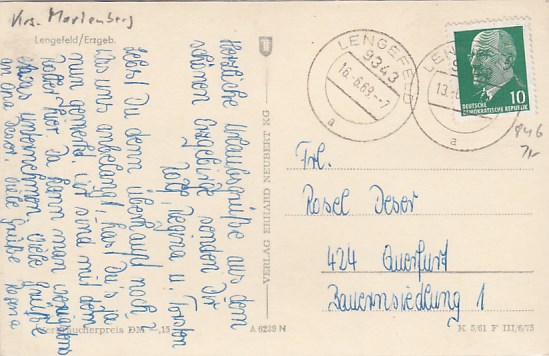 Krs. Marienberg
Lengefeld/Erzgeb.
Herzliche Urlaubsgrüße aus dem
schönen Erzgebirge senden Dir
Rolf, Regina u. Torsten
Lebst Du denn überhaupt noch?
was uns anbelangt, hast Du's ja
nun gemerkt. Wir sind mit dem
hier. Da kann man wenigstens
etwas unternehmen. Viele Grüße
an Viele Grüße Regina
Verbraucherpreis DM —,15
A 6239 N
VERLAG ERHARD NEUBERT KG
LENGEFELD
9343
16.-6.69.-7
a
LENGEF
9
13.-6
a
DEUTSCHE
DEMOKRATISCHE REPUBLIK
10
846
7,-
Frl.
Rosel Deser
424 Querfurt
Bauernsiedlung 1
K 5/61 F III/6/75